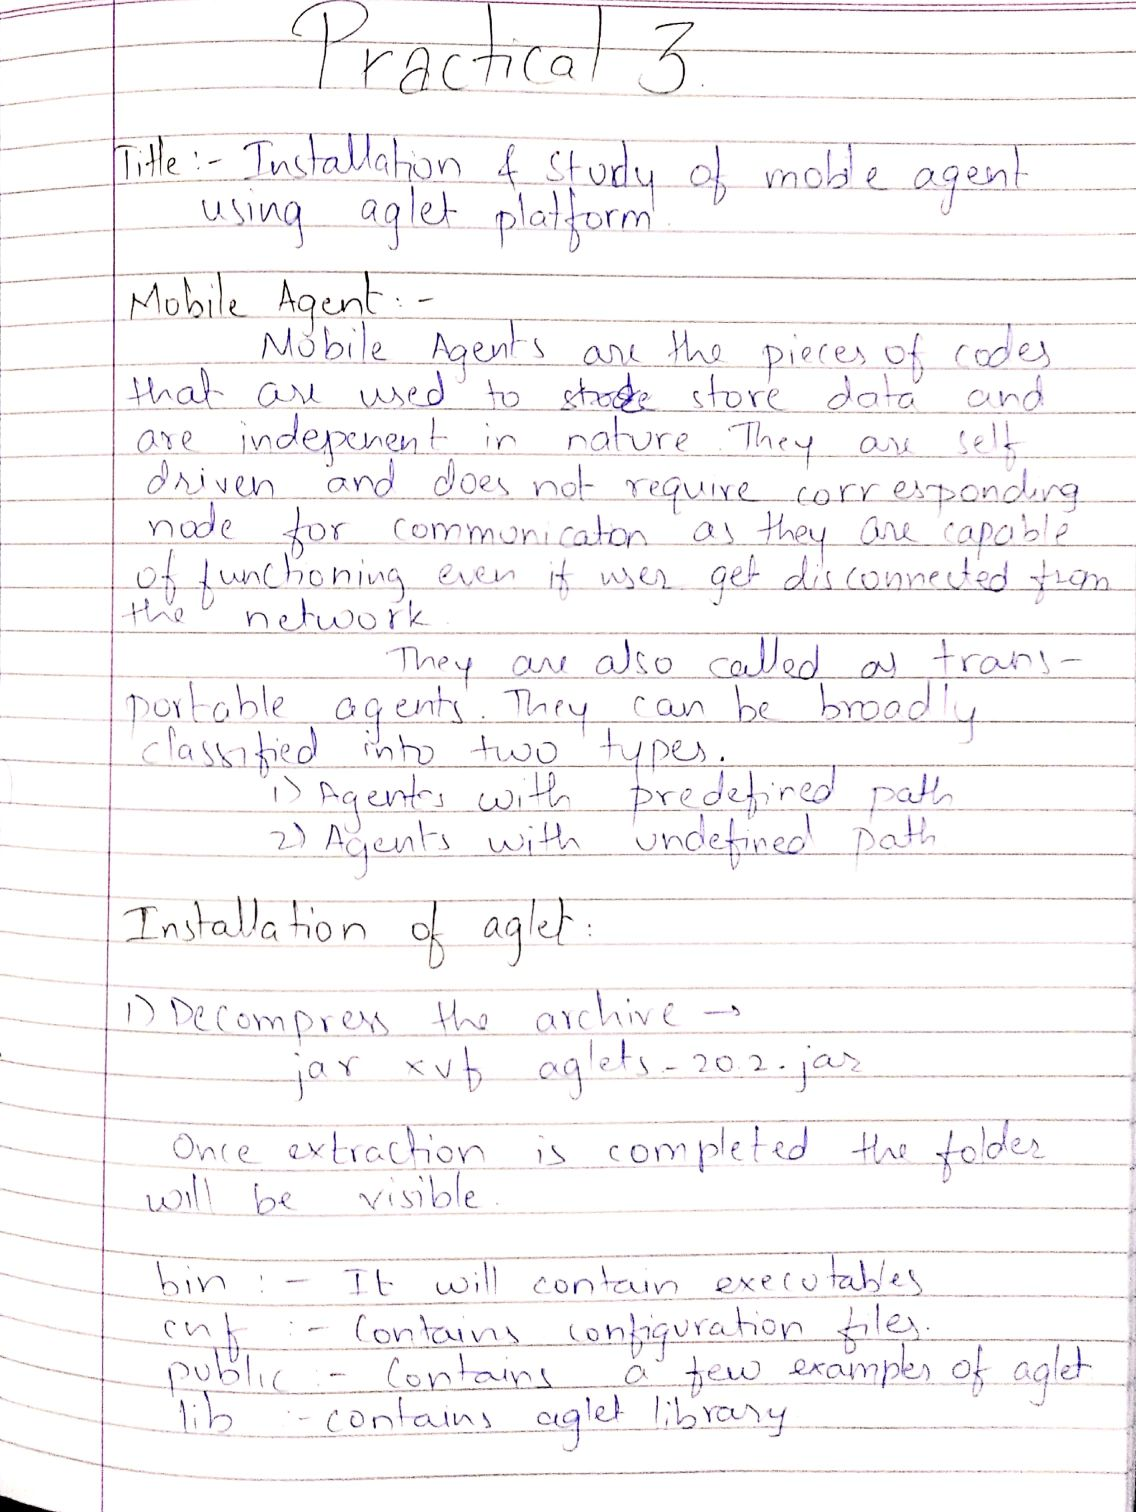 Practical 3.
Title :- Installation & study of mobile agent
using aglet platform.
Mobile Agent :-
Mobile Agents are the pieces of codes
that are used to store data and
are indepenent in nature. They are self
driven and does not require corresponding
node for communicaton as they are capable
of functioning even if user get disconnected from
the network.
They are also called as trans-
portable agents. They can be broadly
classified into two types.
1) Agents with predefined path
2) Agents with undefined path
Installation of aglet :
1) Decompress the archive →
jar xvf aglets-20.2.jar
Once extraction is completed the folder
will be visible.
bin :- It will contain executables
cnf :- Contains configuration files.
public :- Contains a few examples of aglet
lib :- contains aglet library